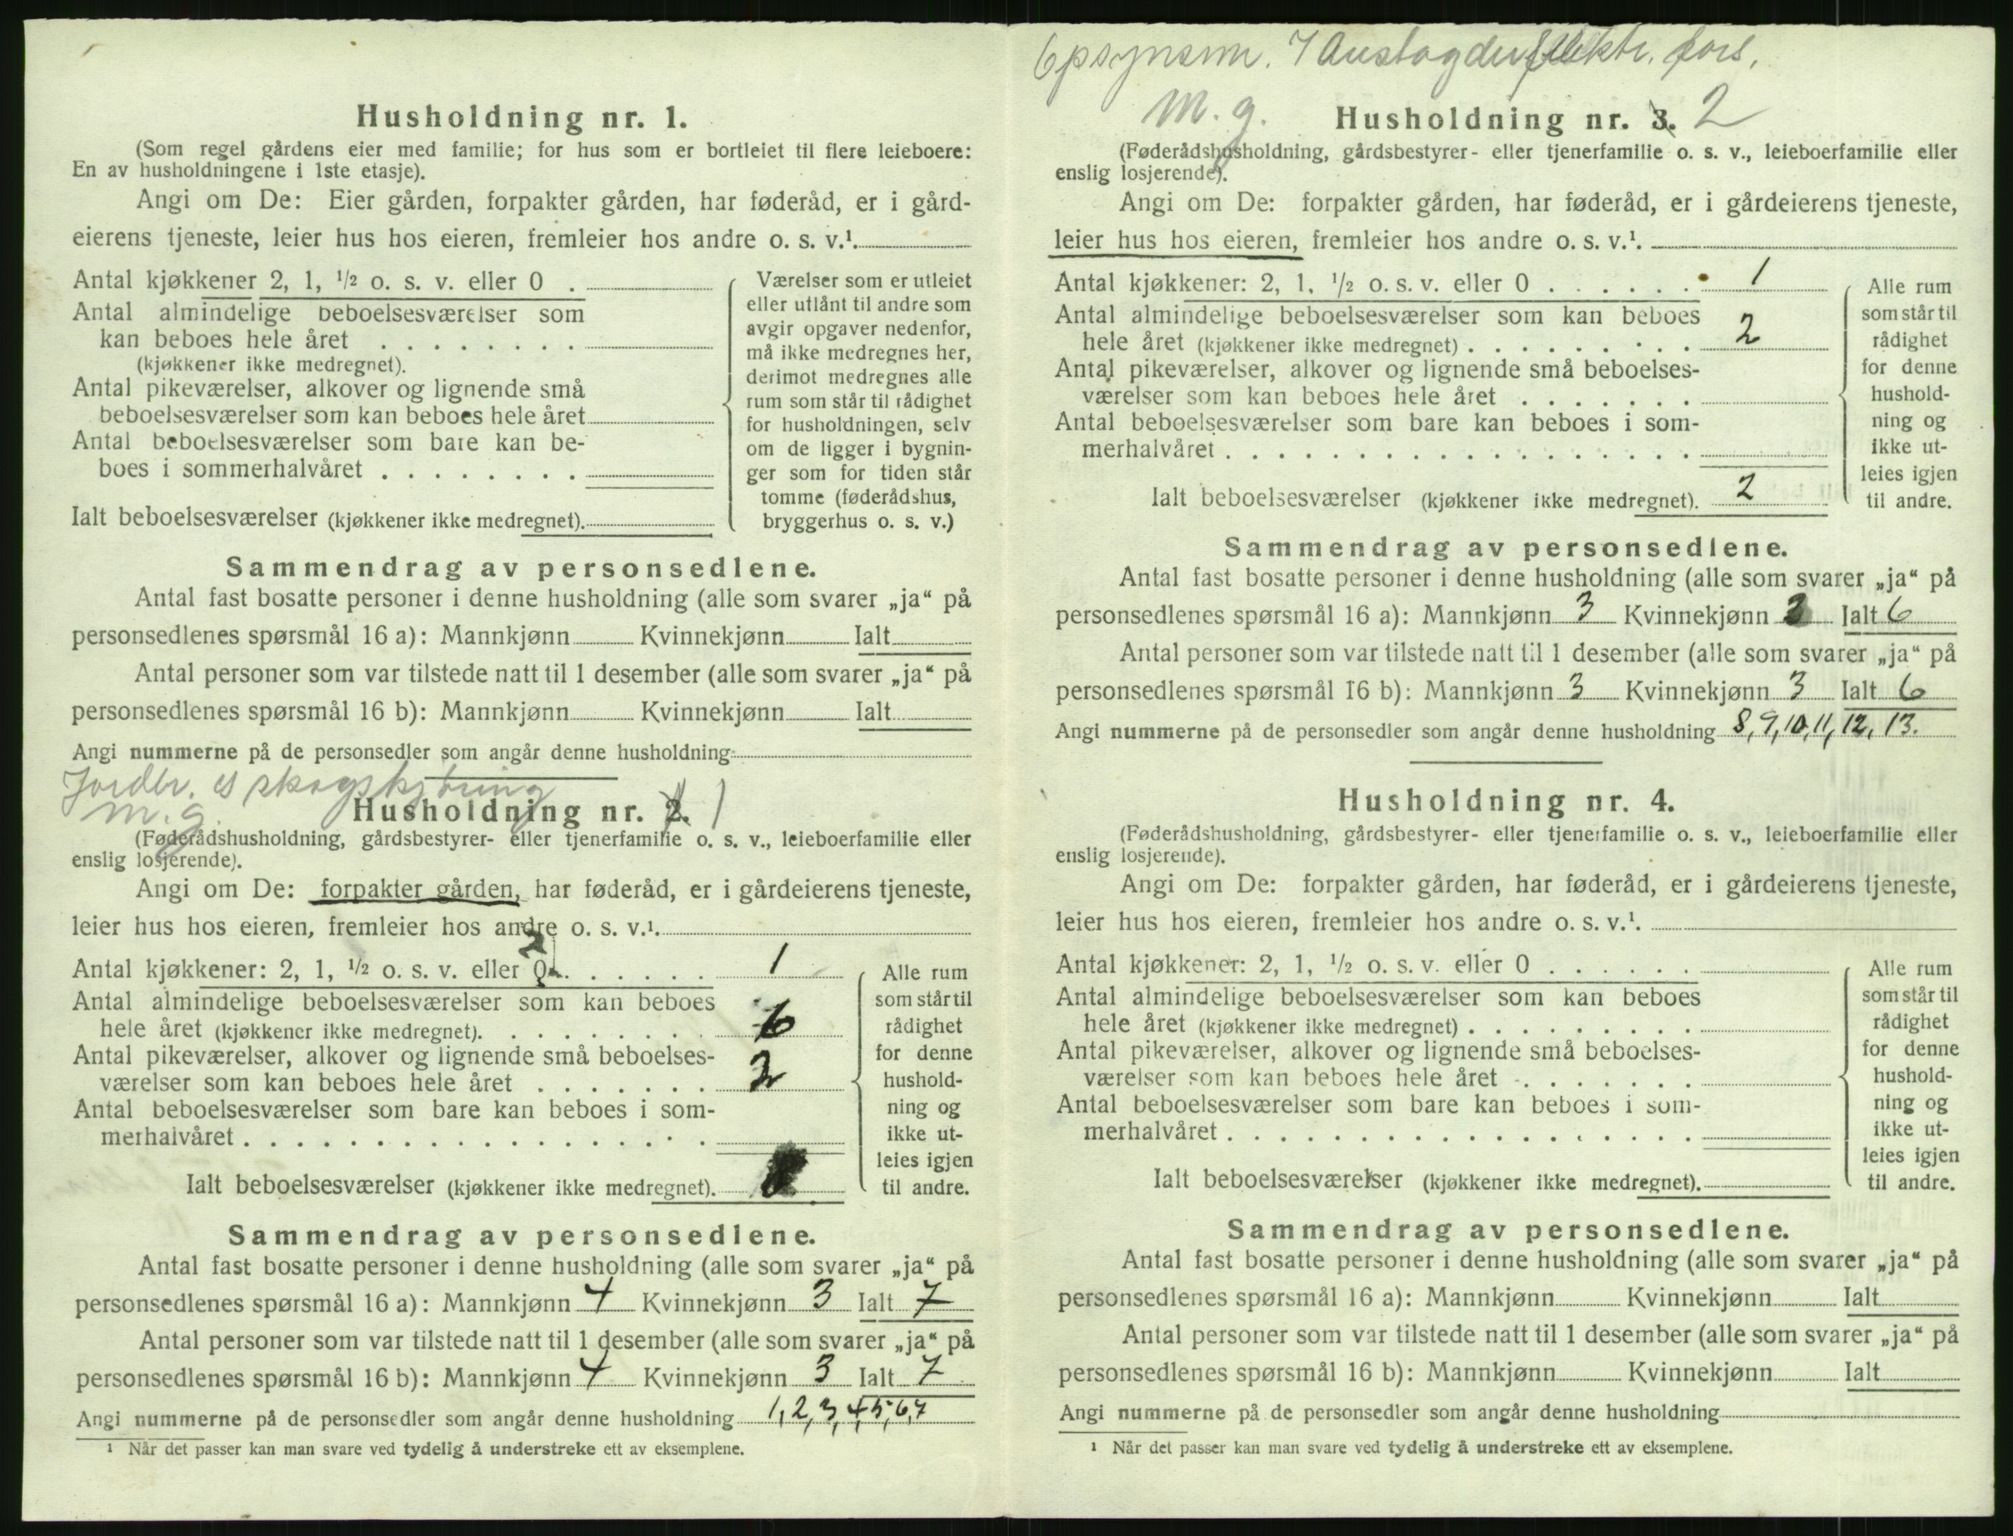 Husholdning nr. 1.
(Som regel gårdens eier med familie; for hus som er bortleiet til flere leieboere:
En av husholdningene i 1ste etasje).
Angi om De: Eier gården, forpakter gården, har føderåd, er i gård-
eierens tjeneste, leier hus hos eieren, fremleier hos andre o. s. v.¹.
Antal kjøkkener 2, 1, ½ o. s. v. eller 0 .
Antal almindelige beboelsesværelser som
kan beboes hele året . . . . . . . .
(kjøkkener ikke medregnet).
Antal pikeværelser, alkover og lignende små
beboelsesværelser som kan beboes hele året
Antal beboelsesværelser som bare kan be-
boes i sommerhalvåret . . . . . . . .
Ialt beboelsesværelser (kjøkkener ikke medregnet).
Værelser som er utleiet
eller utlånt til andre som
avgir opgaver nedenfor,
må ikke medregnes her,
derimot medregnes alle
rum som står til rådighet
for husholdningen, selv
om de ligger i bygnin-
ger som for tiden står
tomme (føderådshus,
bryggerhus o. s. v.)
Sammendrag av personsedlene.
Antal fast bosatte personer i denne husholdning (alle som svarer „ja“ på
personsedlenes spørsmål 16 a): Mannkjønn Kvinnekjønn Ialt
Antal personer som var tilstede natt til 1 desember (alle som svarer „ja“ på
personsedlenes spørsmål 16 b): Mannkjønn Kvinnekjønn Ialt
Angi nummerne på de personsedler som angår denne husholdning
Jordbr. og skogskjøring
m.g. Husholdning nr. 2. 1
(Føderådshusholdning, gårdsbestyrer- eller tjenerfamilie o. s. v., leieboerfamilie eller
enslig losjerende).
Angi om De: forpakter gården, har føderåd, er i gårdeierens tjeneste,
leier hus hos eieren, fremleier hos andre o. s. v.¹.
Antal kjøkkener: 2, 1, ½ o. s. v. eller 0 . . . . . . 1
Antal almindelige beboelsesværelser som kan beboes
hele året (kjøkkener ikke medregnet). . . . . . . . . 6
Antal pikeværelser, alkover og lignende små beboelses-
værelser som kan beboes hele året . . . . . . . 2
Antal beboelsesværelser som bare kan beboes i som-
merhalvåret . . . . . . . . . . . . . . . . . .
Ialt beboelsesværelser (kjøkkener ikke medregnet). 8
Alle rum
som står til
rådighet
for denne
hushold-
ning og
ikke ut-
leies igjen
til andre.
Sammendrag av personsedlene.
Antal fast bosatte personer i denne husholdning (alle som svarer „ja“ på
personsedlenes spørsmål 16 a): Mannkjønn 4 Kvinnekjønn 3 Ialt 7
Antal personer som var tilstede natt til 1 desember (alle som svarer „ja“ på
personsedlenes spørsmål 16 b): Mannkjønn 4 Kvinnekjønn 3 Ialt 7
Angi nummerne på de personsedler som angår denne husholdning 1, 2, 3, 4, 5, 6, 7
¹ Når det passer kan man svare ved tydelig å understreke ett av eksemplene.
Opsynsm. Austagder elektr. fors.
M. g. Husholdning nr. 3. 2
(Føderådshusholdning, gårdsbestyrer- eller tjenerfamilie o. s. v., leieboerfamilie eller
enslig losjerende).
Angi om De: forpakter gården, har føderåd, er i gårdeierens tjeneste,
leier hus hos eieren, fremleier hos andre o. s. v.¹.
Antal kjøkkener: 2, 1, ½ o. s. v. eller 0 . . . . . . 1
Antal almindelige beboelsesværelser som kan beboes
hele året (kjøkkener ikke medregnet) . . . . . . . . . 2
Antal pikeværelser, alkover og lignende små beboelses-
værelser som kan beboes hele året . . . . . . .
Antal beboelsesværelser som bare kan beboes i som-
merhalvåret . . . . . . . . . . . . . . . . . .
Ialt beboelsesværelser (kjøkkener ikke medregnet). 2
Alle rum
som står til
rådighet
for denne
hushold-
ning og
ikke ut-
leies igjen
til andre.
Sammendrag av personsedlene.
Antal fast bosatte personer i denne husholdning (alle som svarer „ja“ på
personsedlenes spørsmål 16 a): Mannkjønn 3 Kvinnekjønn 3 Ialt 6
Antal personer som var tilstede natt til 1 desember (alle som svarer „ja“ på
personsedlenes spørsmål 16 b): Mannkjønn 3 Kvinnekjønn 3 Ialt 6
Angi nummerne på de personsedler som angår denne husholdning 8, 9, 10, 11, 12, 13.
Husholdning nr. 4.
(Føderådshusholdning, gårdsbestyrer- eller tjenerfamilie o. s. v., leieboerfamilie eller
enslig losjerende).
Angi om De: forpakter gården, har føderåd, er i gårdeierens tjeneste,
leier hus hos eieren, fremleier hos andre o. s. v.¹.
Antal kjøkkener: 2, 1, ½ o. s. v. eller 0 . . . . . .
Antal almindelige beboelsesværelser som kan beboes
hele året (kjøkkener ikke medregnet) . . . . . . . . .
Antal pikeværelser, alkover og lignende små beboelses-
værelser som kan beboes hele året . . . . . . .
Antal beboelsesværelser som bare kan beboes i som-
merhalvåret . . . . . . . . . . . . . . . . . .
Ialt beboelsesværelser (kjøkkener ikke medregnet).
Alle rum
som står til
rådighet
for denne
hushold-
ning og
ikke ut-
leies igjen
til andre.
Sammendrag av personsedlene.
Antal fast bosatte personer i denne husholdning (alle som svarer „ja“ på
personsedlenes spørsmål 16 a): Mannkjønn Kvinnekjønn Ialt
Antal personer som var tilstede natt til 1 desember (alle som svarer „ja“ på
personsedlenes spørsmål 16 b): Mannkjønn Kvinnekjønn Ialt
Angi nummerne på de personsedler som angår denne husholdning
¹ Når det passer kan man svare ved tydelig å understreke ett av eksemplene.